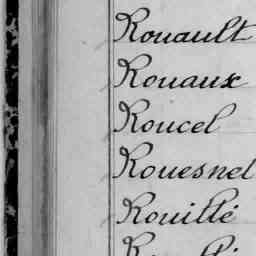 Rouault
Rouaux
Roucel
Rouesnel
Rouillé